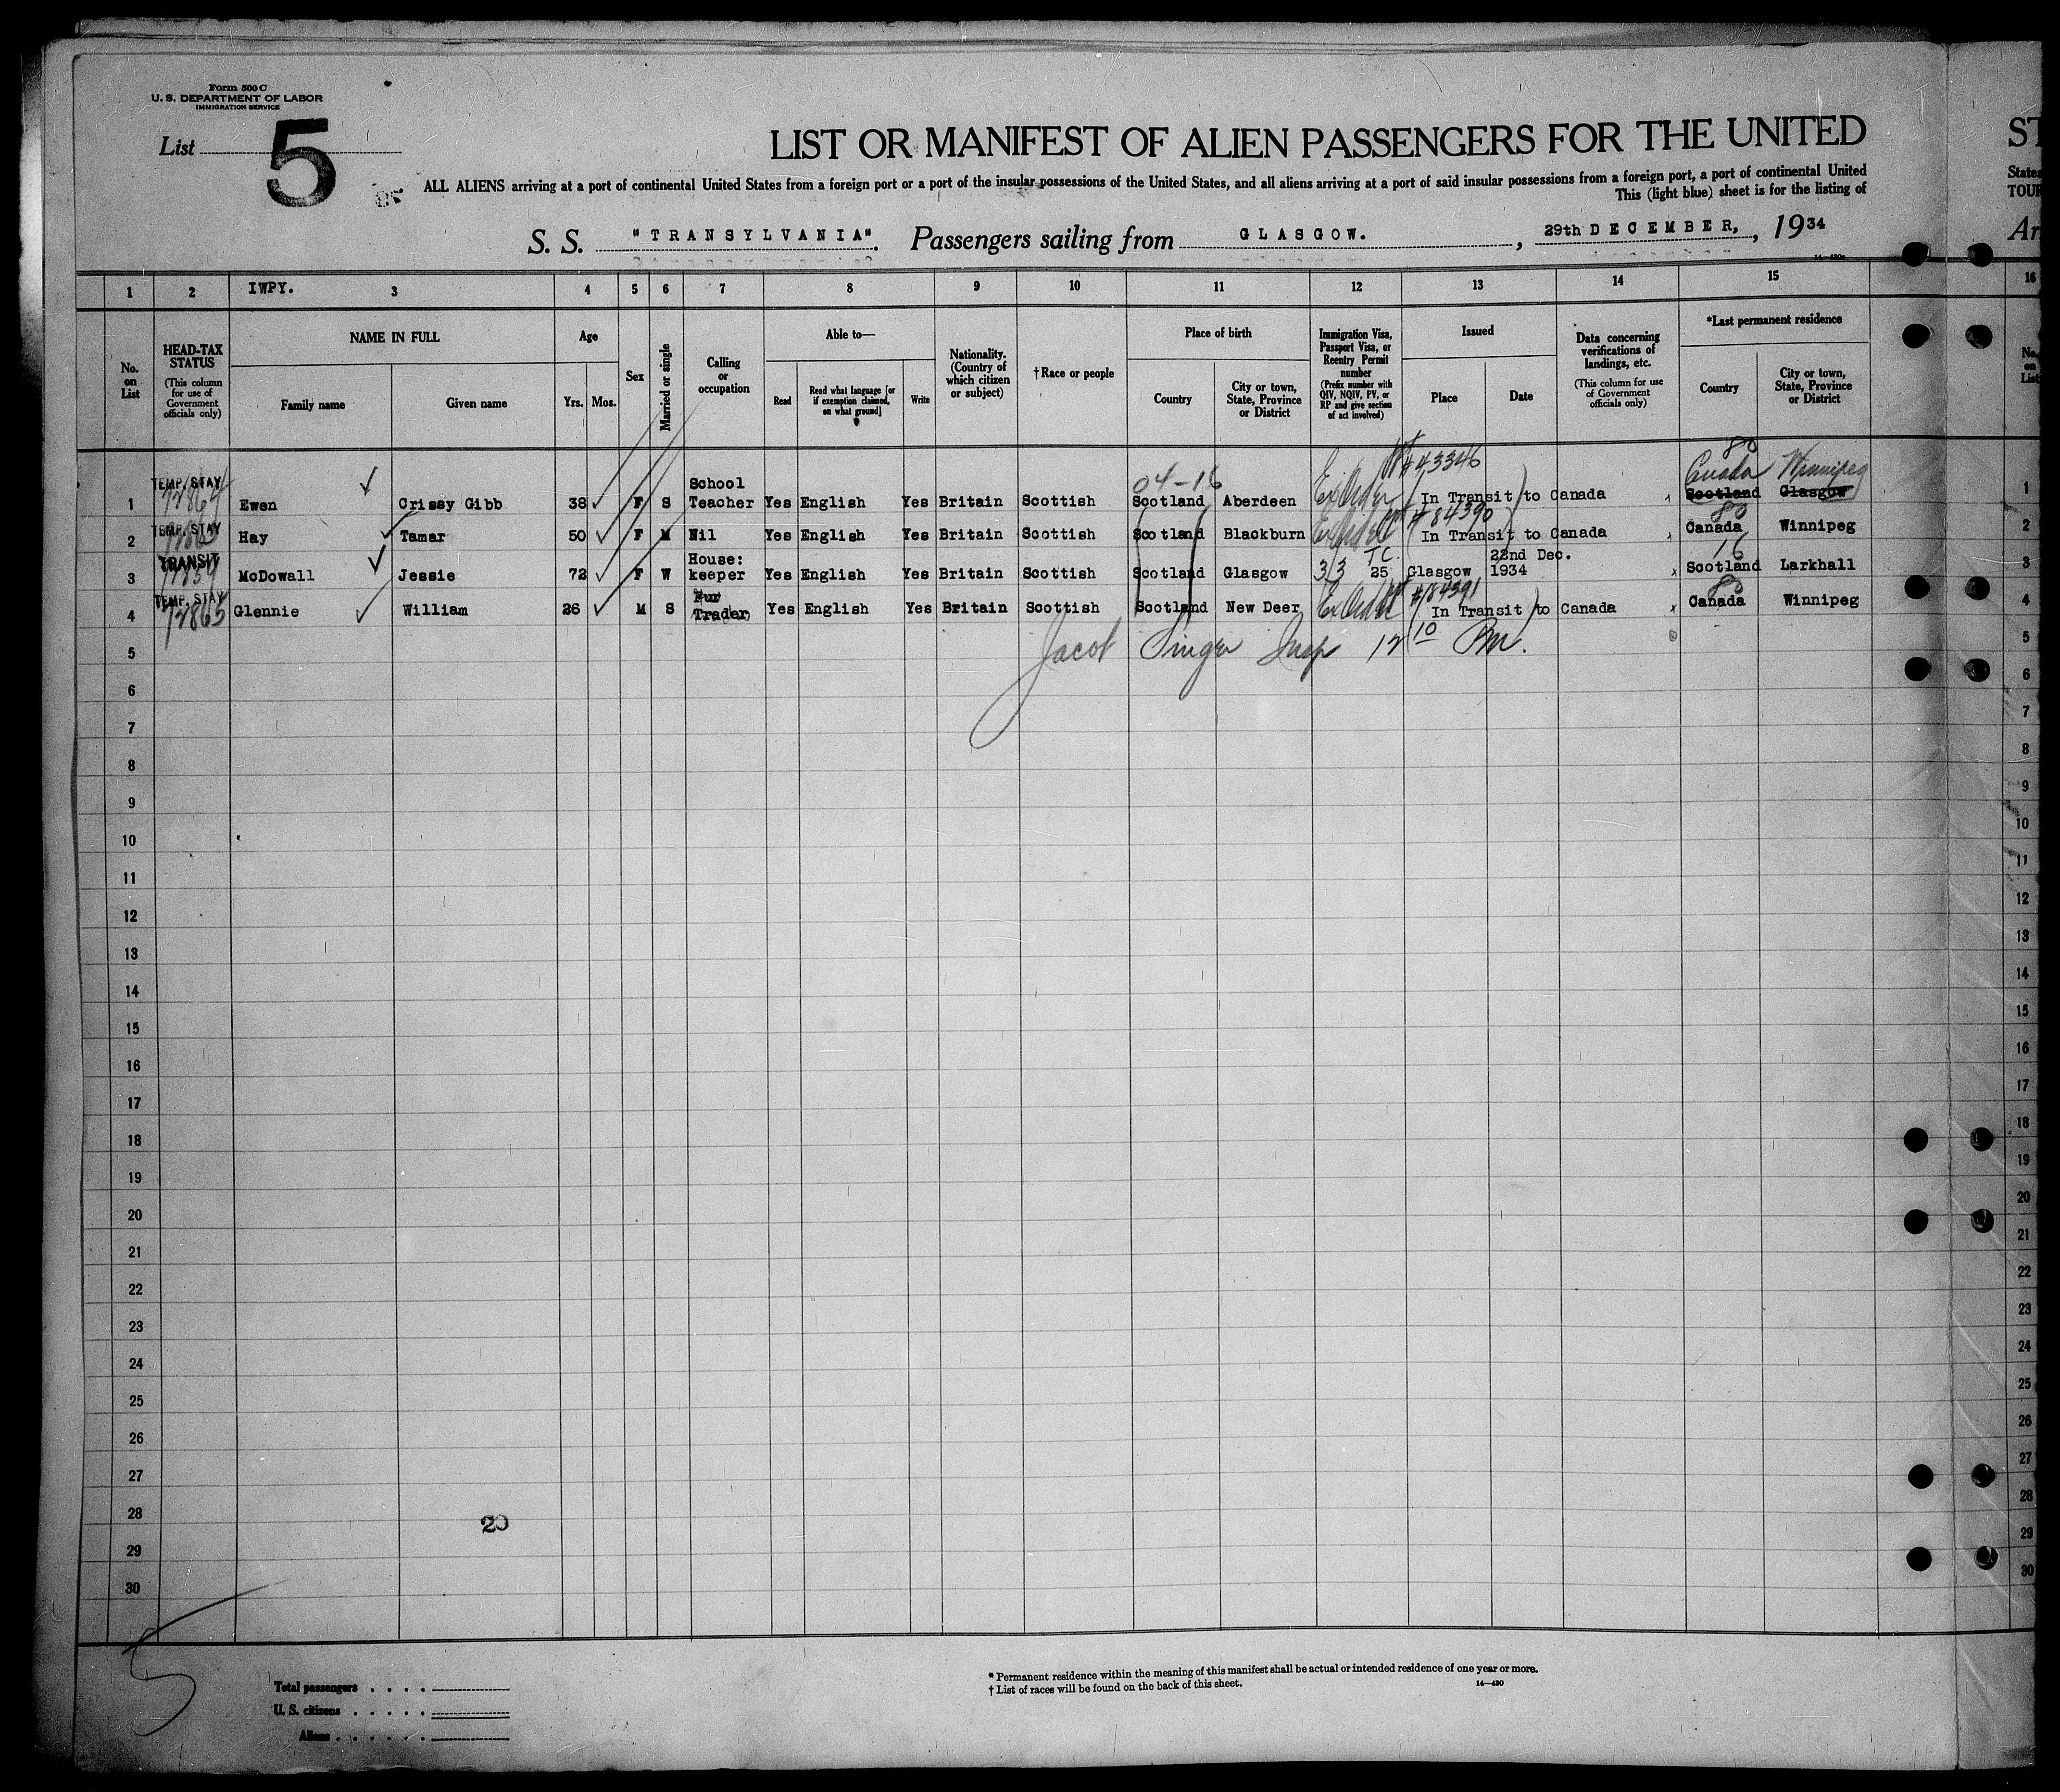 Form 500 C
U. S. DEPARTMENT OF LABOR
IMMIGRATION SERVICE
List 5
LIST OR MANIFEST OF ALIEN PASSENGERS FOR THE UNITED ST
ALL ALIENS arriving at a port of continental United States from a foreign port or a port of the insular possessions of the United States, and all aliens arriving at a port of said insular possessions from a foreign port, a port of continental United States
This (light blue) sheet is for the listing of TOUR
S. S. "TRANSYLVANIA". Passengers sailing from GLASGOW. , 29th DECEMBER, , 1934 Ar
14—430c
1 2 IWPY. 3 4 5 6 7 8 9 10 11 12 13 14 15 16
No. on List
HEAD-TAX STATUS (This column for use of Government officials only)
NAME IN FULL
Family name Given name
Age
Yrs. Mos.
Sex
Married or single
Calling or occupation
Able to—
Read Read what language [or if exemption claimed, on what ground] Write
Nationality. (Country of which citizen or subject)
†Race or people
Place of birth
Country City or town, State, Province or District
Immigration Visa, Passport Visa, or Reentry Permit number (Prefix number with QIV, NQIV, PV, or RP and give section of act involved)
Issued
Place Date
Data concerning verifications of landings, etc. (This column for use of Government officials only)
*Last permanent residence
Country City or town, State, Province or District
No. on List
1 TEMP. STAY 72864 Ewen Crissy Gibb 38 F S School Teacher Yes English Yes Britain Scottish 04-16 Scotland Aberdeen Ex Order #43346 In Transit to Canada 80 Canada Winnipeg Scotland Glasgow 1
2 TEMP. STAY Hay Tamar 50 F M Nil Yes English Yes Britain Scottish Scotland Blackburn Ex Order #84390 In Transit to Canada 80 Canada Winnipeg 2
3 TRANSIT McDowall Jessie 72 F W House: keeper Yes English Yes Britain Scottish Scotland Glasgow 3/3 TC 25 Glasgow 22nd Dec. 1934 16 Scotland Larkhall 3
4 TEMP. STAY 72865 Glennie William 26 M S Fur Trader Yes English Yes Britain Scottish Scotland New Deer Ex Order #184391 In Transit to Canada 80 Canada Winnipeg 4
5 Jacob Singer Insp 12 10 Pm. 5
6 6
7 7
8 8
9 9
10 10
11 11
12 12
13 13
14 14
15 15
16 16
17 17
18 18
19 19
20 20
21 21
22 22
23 23
24 24
25 25
26 26
27 27
28 20 28
29 29
30 30
5
Total passengers . . . .
U. S. citizens . . . . .
Aliens . . . . . .
* Permanent residence within the meaning of this manifest shall be actual or intended residence of one year or more.
† List of races will be found on the back of this sheet. 14—430